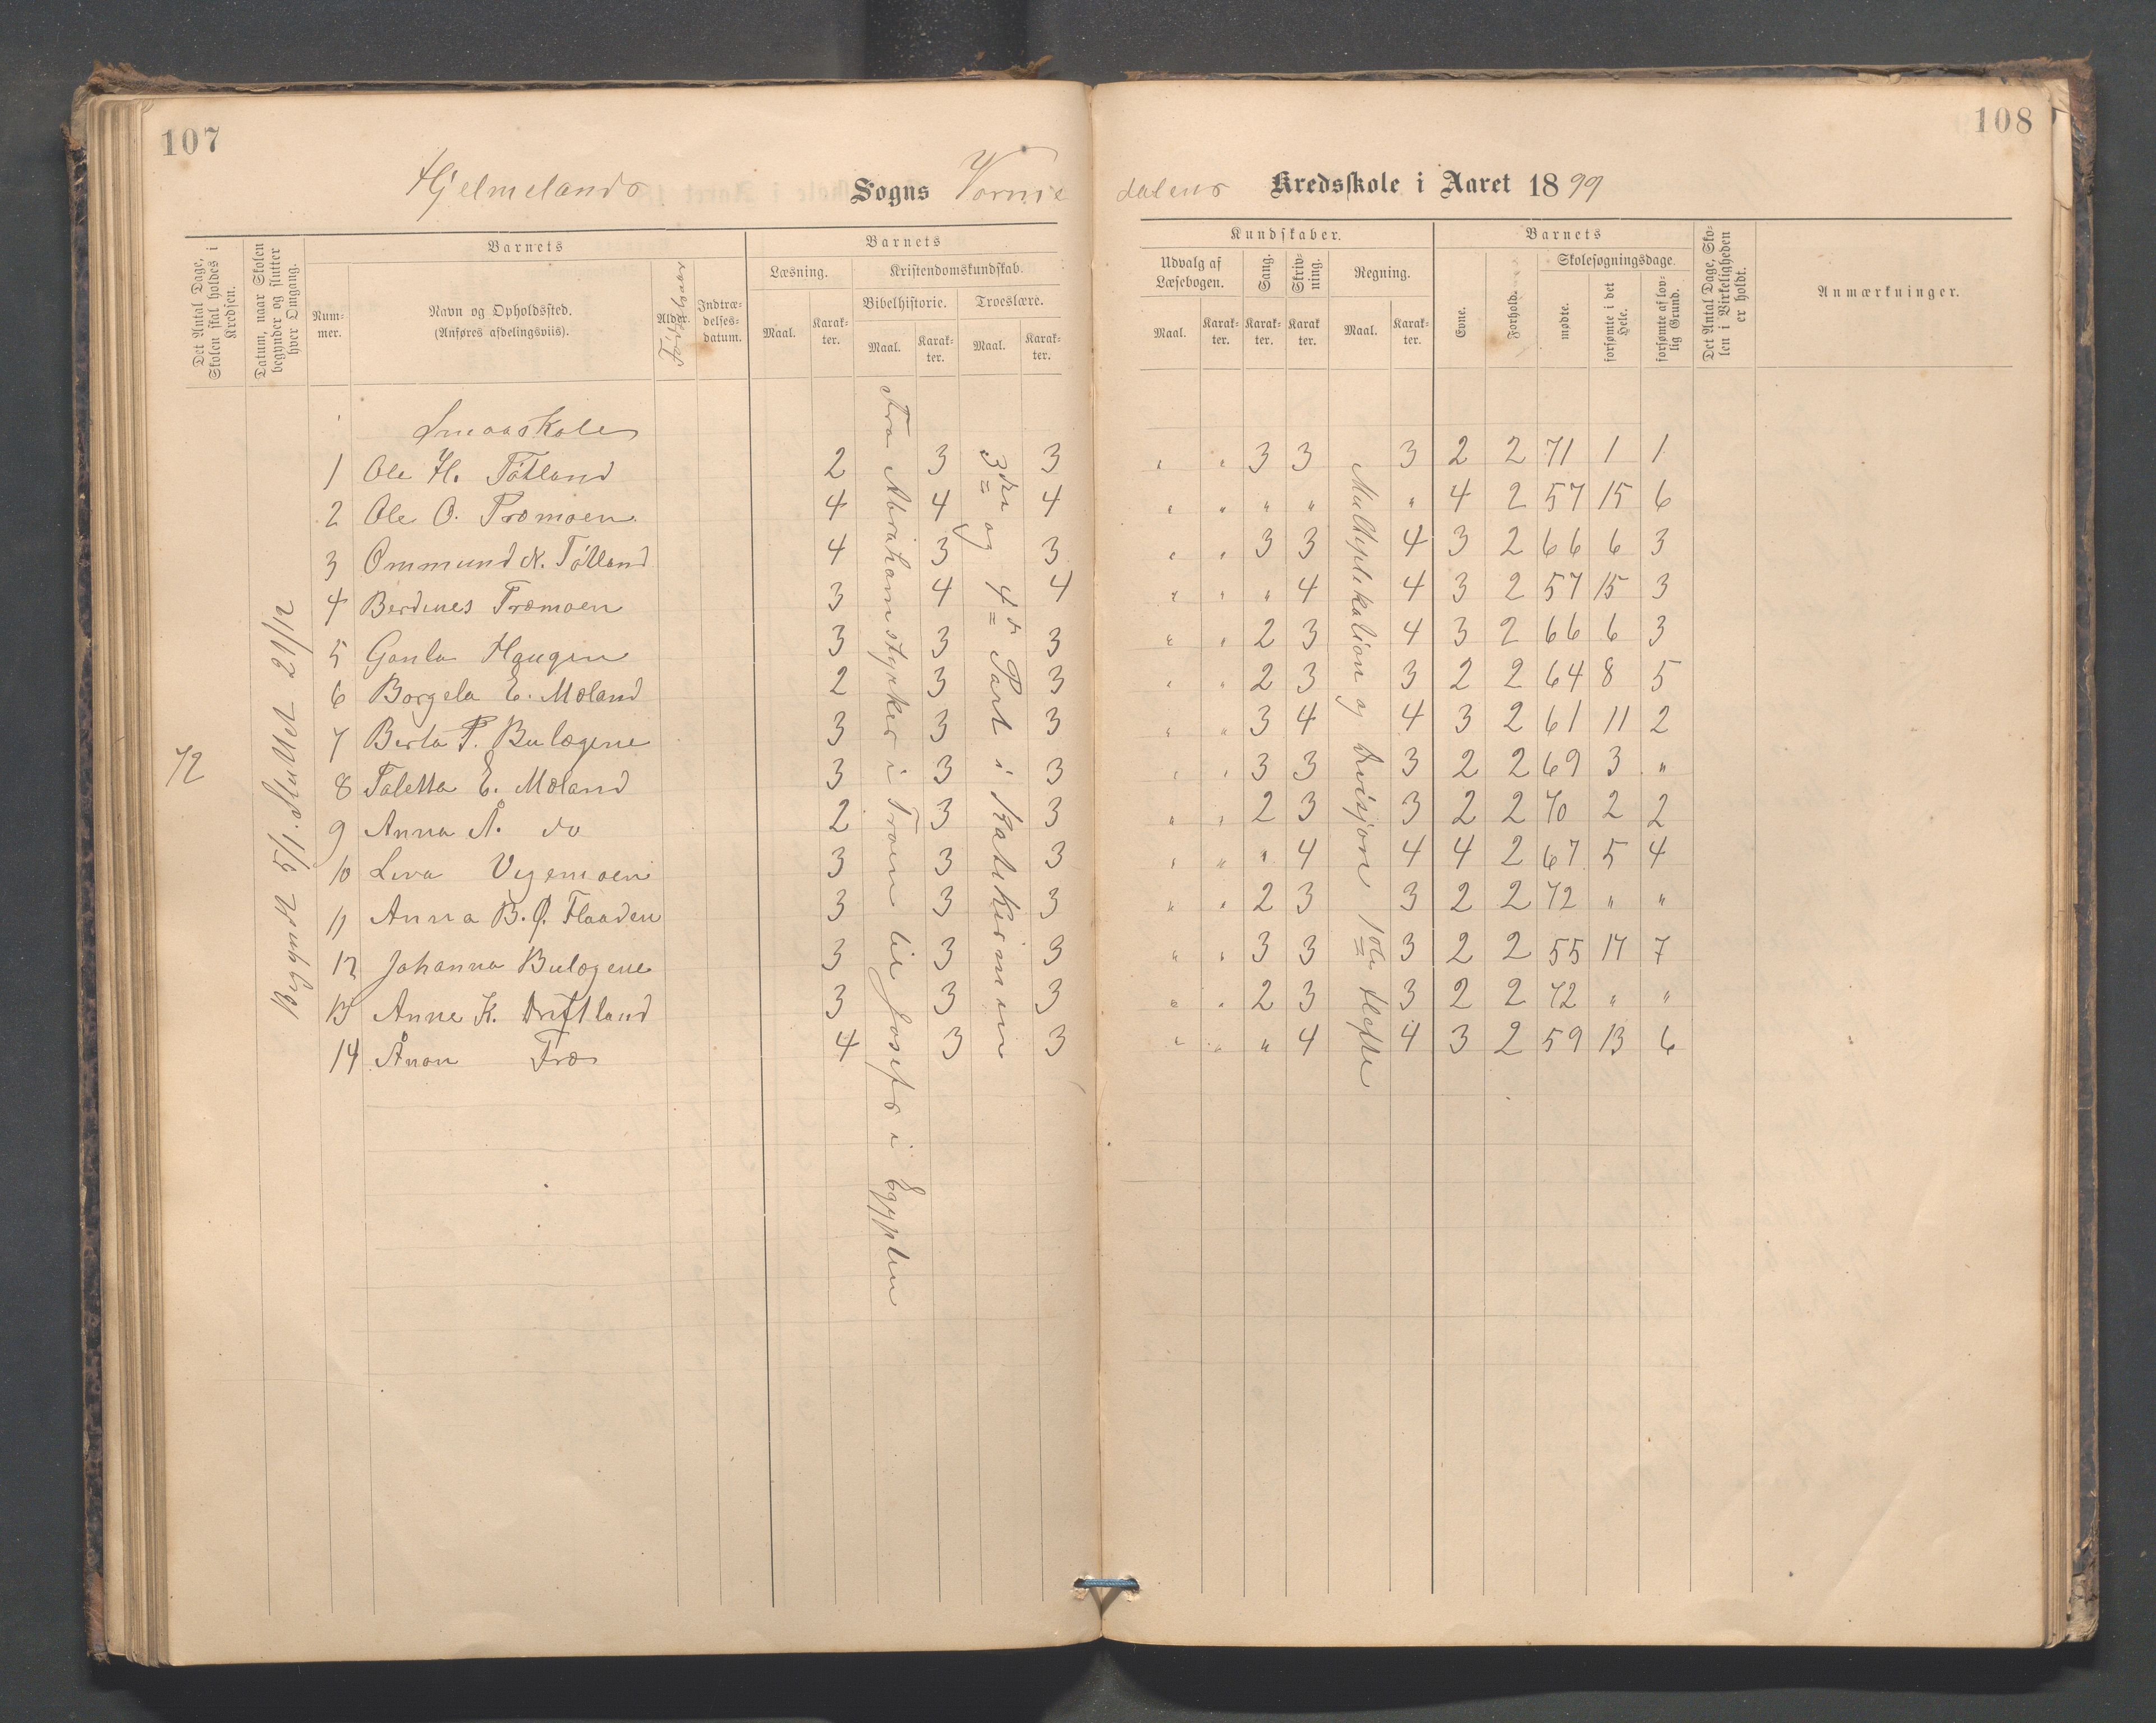 107
108
Hjelmelands Sogns Vorme
dalens Kredsskole i Aaret 1899
Det Antal Dage, Skolen skal holdes i Kredsen.
Datum, naar Skolen begynder og slutter hver Omgang.
Barnets
Nummer.
Navn og Opholdssted.
(Anføres afdelingsviis).
Alder.
Indtrædelsesdatum.
Barnets
Læsning.
Maal.
Karakter.
Kristendomskundskab.
Bibelhistorie.
Maal.
Karakter.
Troeslære.
Maal.
Karakter.
Kundskaber.
Udvalg af Læsebogen.
Maal.
Karakter.
Sang.
Karakter.
Skrivning.
Karakter.
Regning.
Maal.
Karakter.
Barnets
Evne.
Forhold.
Skolesøgningsdage.
mødte.
forsømte i det Hele.
forsømte af lovlig Grund.
Det Antal Dage, Skolen i Virkeligheden er holdt.
Anmærkninger.
72
Begyndt 5/1. Sluttet 21/12
Fra Abrahamstykket i Troen til Josefs i Egypten
3die og 4de Part i Katekismen
Multiplikation og Divisjon 1ste Hefte
Smaaskole
1 Ole H. Tøtland 2 3 3 " " 3 3 3 2 2 71 1 1
2 Ole O. Tromoen 4 4 4 " " " " " 4 2 57 15 6
3 Ommund N. Tøtland 4 3 3 " " 3 3 4 3 2 66 6 3
4 Berdines Tromoen 3 4 4 " " " 4 4 3 2 57 15 3
5 Gonla Haugen 3 3 3 " " 2 3 4 3 2 66 6 3
6 Borgela E. Mæland 2 3 3 " " 2 3 3 2 2 64 8 5
7 Berta T. Bulægene 3 3 3 " " 3 4 4 3 2 61 11 2
8 Taletta E. Mæland 3 3 3 " " 3 3 3 2 2 69 3 "
9 Anna Å. do 2 3 3 " " 2 3 3 2 2 70 2 2
10 Liva Vigemoen 3 3 3 " " " 4 4 4 2 67 5 4
11 Anna B. Ø. Flaaden 3 3 3 " " 2 3 3 2 2 72 " "
12 Johanna Bulægene 3 3 3 " " 3 3 3 2 2 55 17 7
13 Anne K. Driftland 3 3 3 " " 2 3 3 2 2 72 " "
14 Ånon Træ 4 3 3 " " " 4 4 3 2 59 13 6